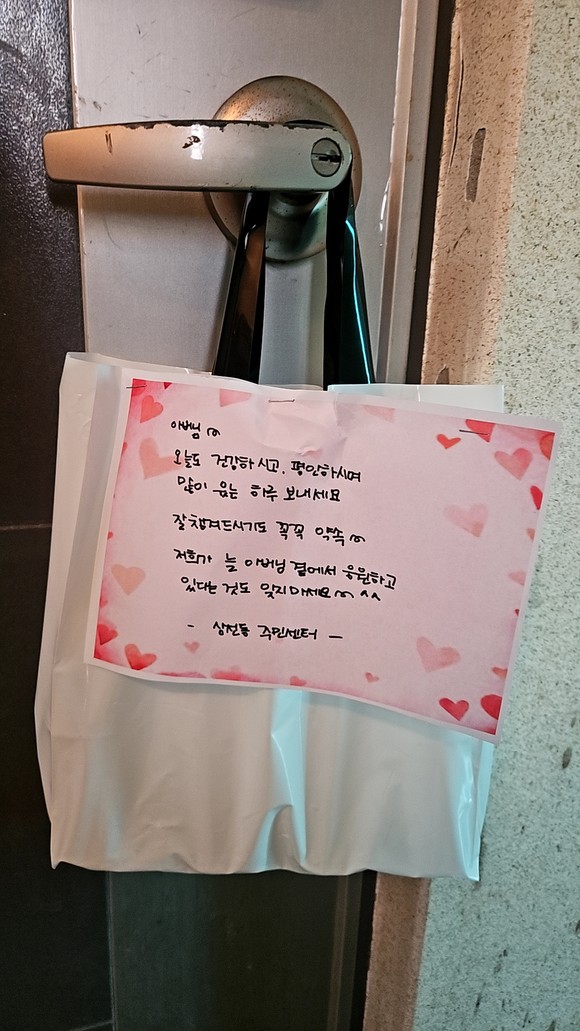 아버님~
오늘도 건강하시고, 평안하시며
많이 웃는 하루 보내세요
잘 챙겨드시기도 꼭꼭 약속~
저희가 늘 아버님 곁에서 응원하고
있다는 것도 잊지마세요~ ^^
- 상전동 주민센터 -